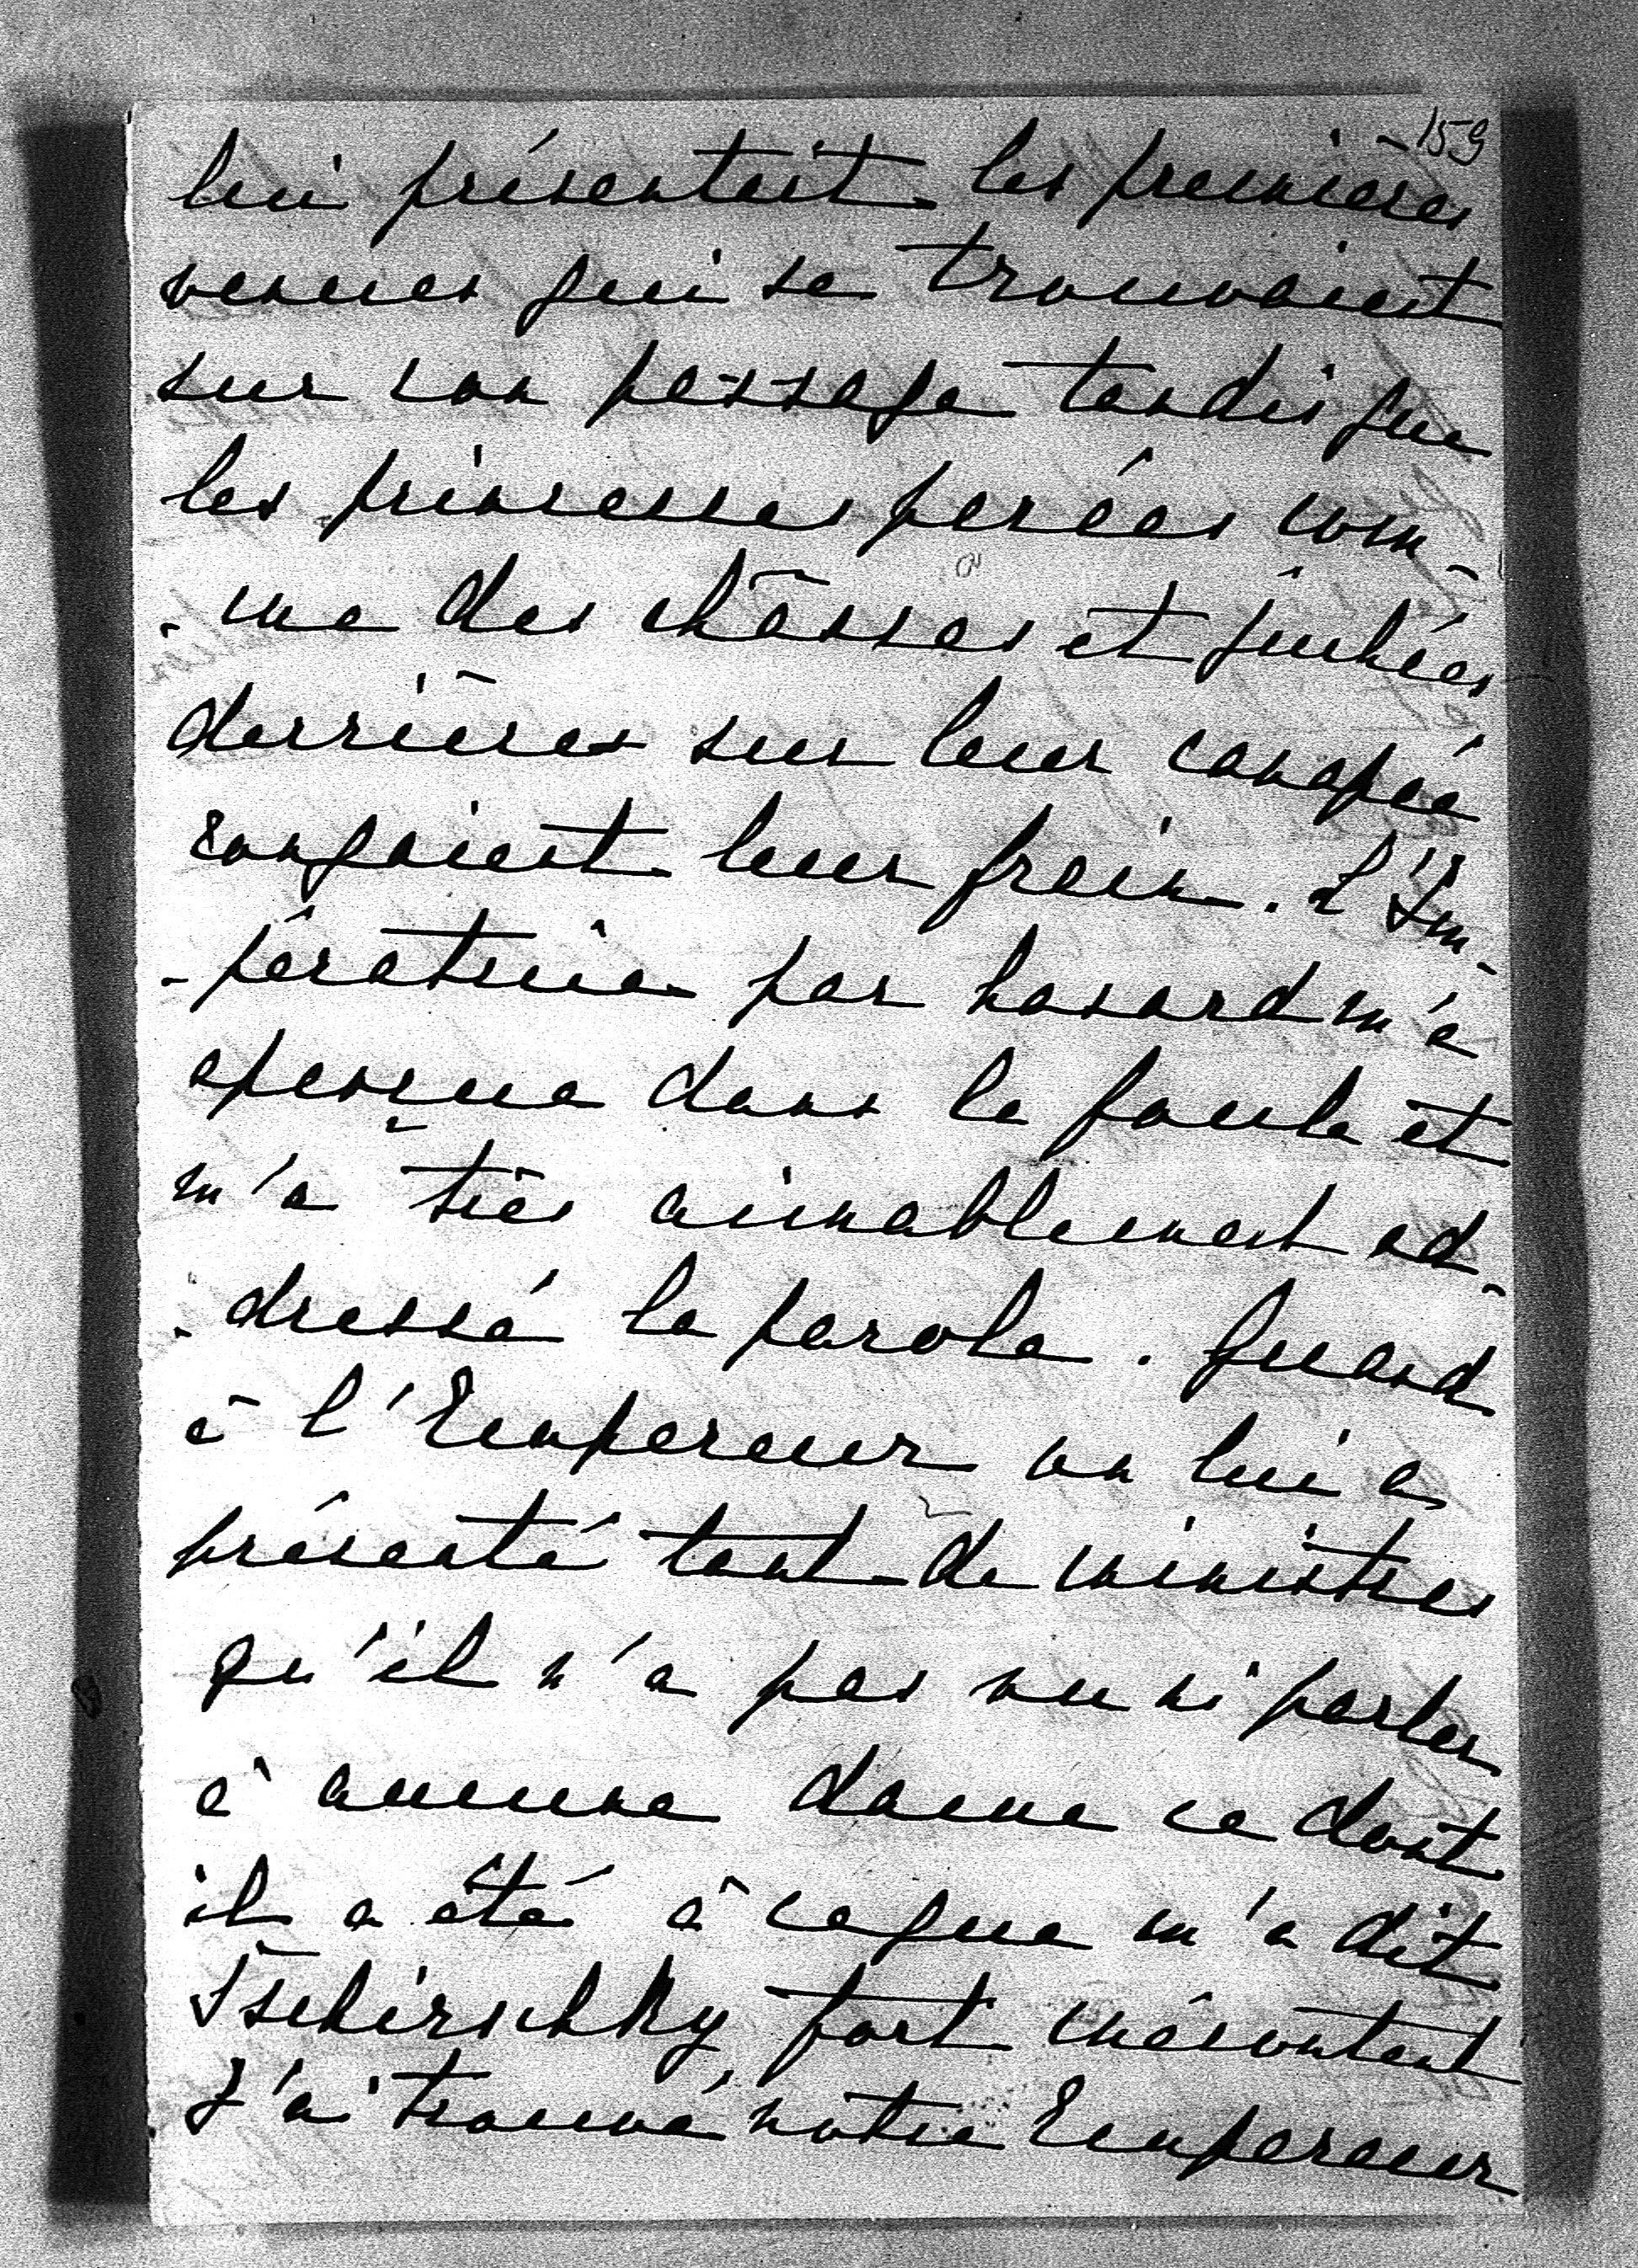 159
lui présentait les premières
venues qui se trouvaient
sur son passage tandis que
les princesses parées com-
-me des châsses et juchées
derrières sur leur canapé
rongaient leur frein. L'Im-
-pératrice par hasard m'a
aperçue dans la foule et
m'a très aimablement ad-
-dressé la parole. Quand
à l'Empereur on lui a
présenté tant de ministres
qu'il n'a pas vu ni parler
à aucune dame ce dont
il a été à ce que m'a dit
Tschirschky, fort mécontent
J'ai trouvé notre Empereur